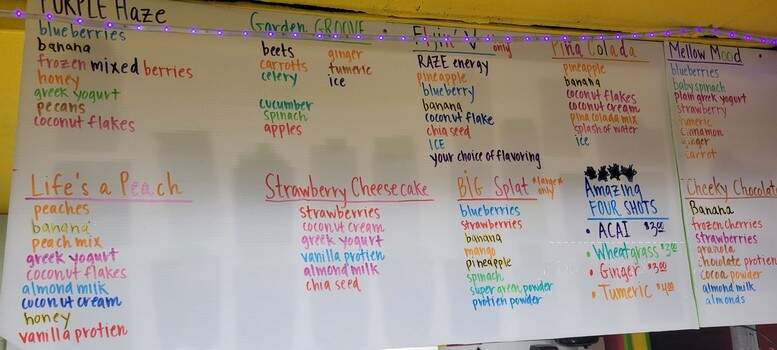 PURPLE Haze
blueberries
banana
frozen mixed berries
honey
greek yogurt
pecans
coconut flakes
Garden GROOVE
beets
carrotts
celery
cucumber
spinach
apples
ginger
tumeric
ice
Flyin' V only
RAZE energy
pineapple
blueberry
banana
coconut flake
chia seed
ICE
your choice of flavoring
Pina Colada
pineapple
banana
coconut flakes
coconut cream
pina colada mix
splash of water
ice
Mellow Mood
blueberries
baby spinach
plain greek yogurt
strawberry
tumeric
cinnamon
ginger
carrot
Life's a Peach
peaches
banana
peach mix
greek yogurt
coconut flakes
almond milk
coconut cream
honey
vanilla protien
Strawberry Cheesecake
strawberries
coconut cream
greek yogurt
vanilla protien
almond milk
chia seed
BiG Splat *large* only
blueberries
strawberries
banana
mango
pineapple
spinach
super green powder
protien powder
Amazing
FOUR SHOTS
• ACAI $3.00
• Wheatgrass $3.00
• Ginger $3.00
• Tumeric $4.00
Cheeky Chocolat
Banana
frozen cherries
strawberries
granola
chololate protien
cocoa powder
almond milk
almonds